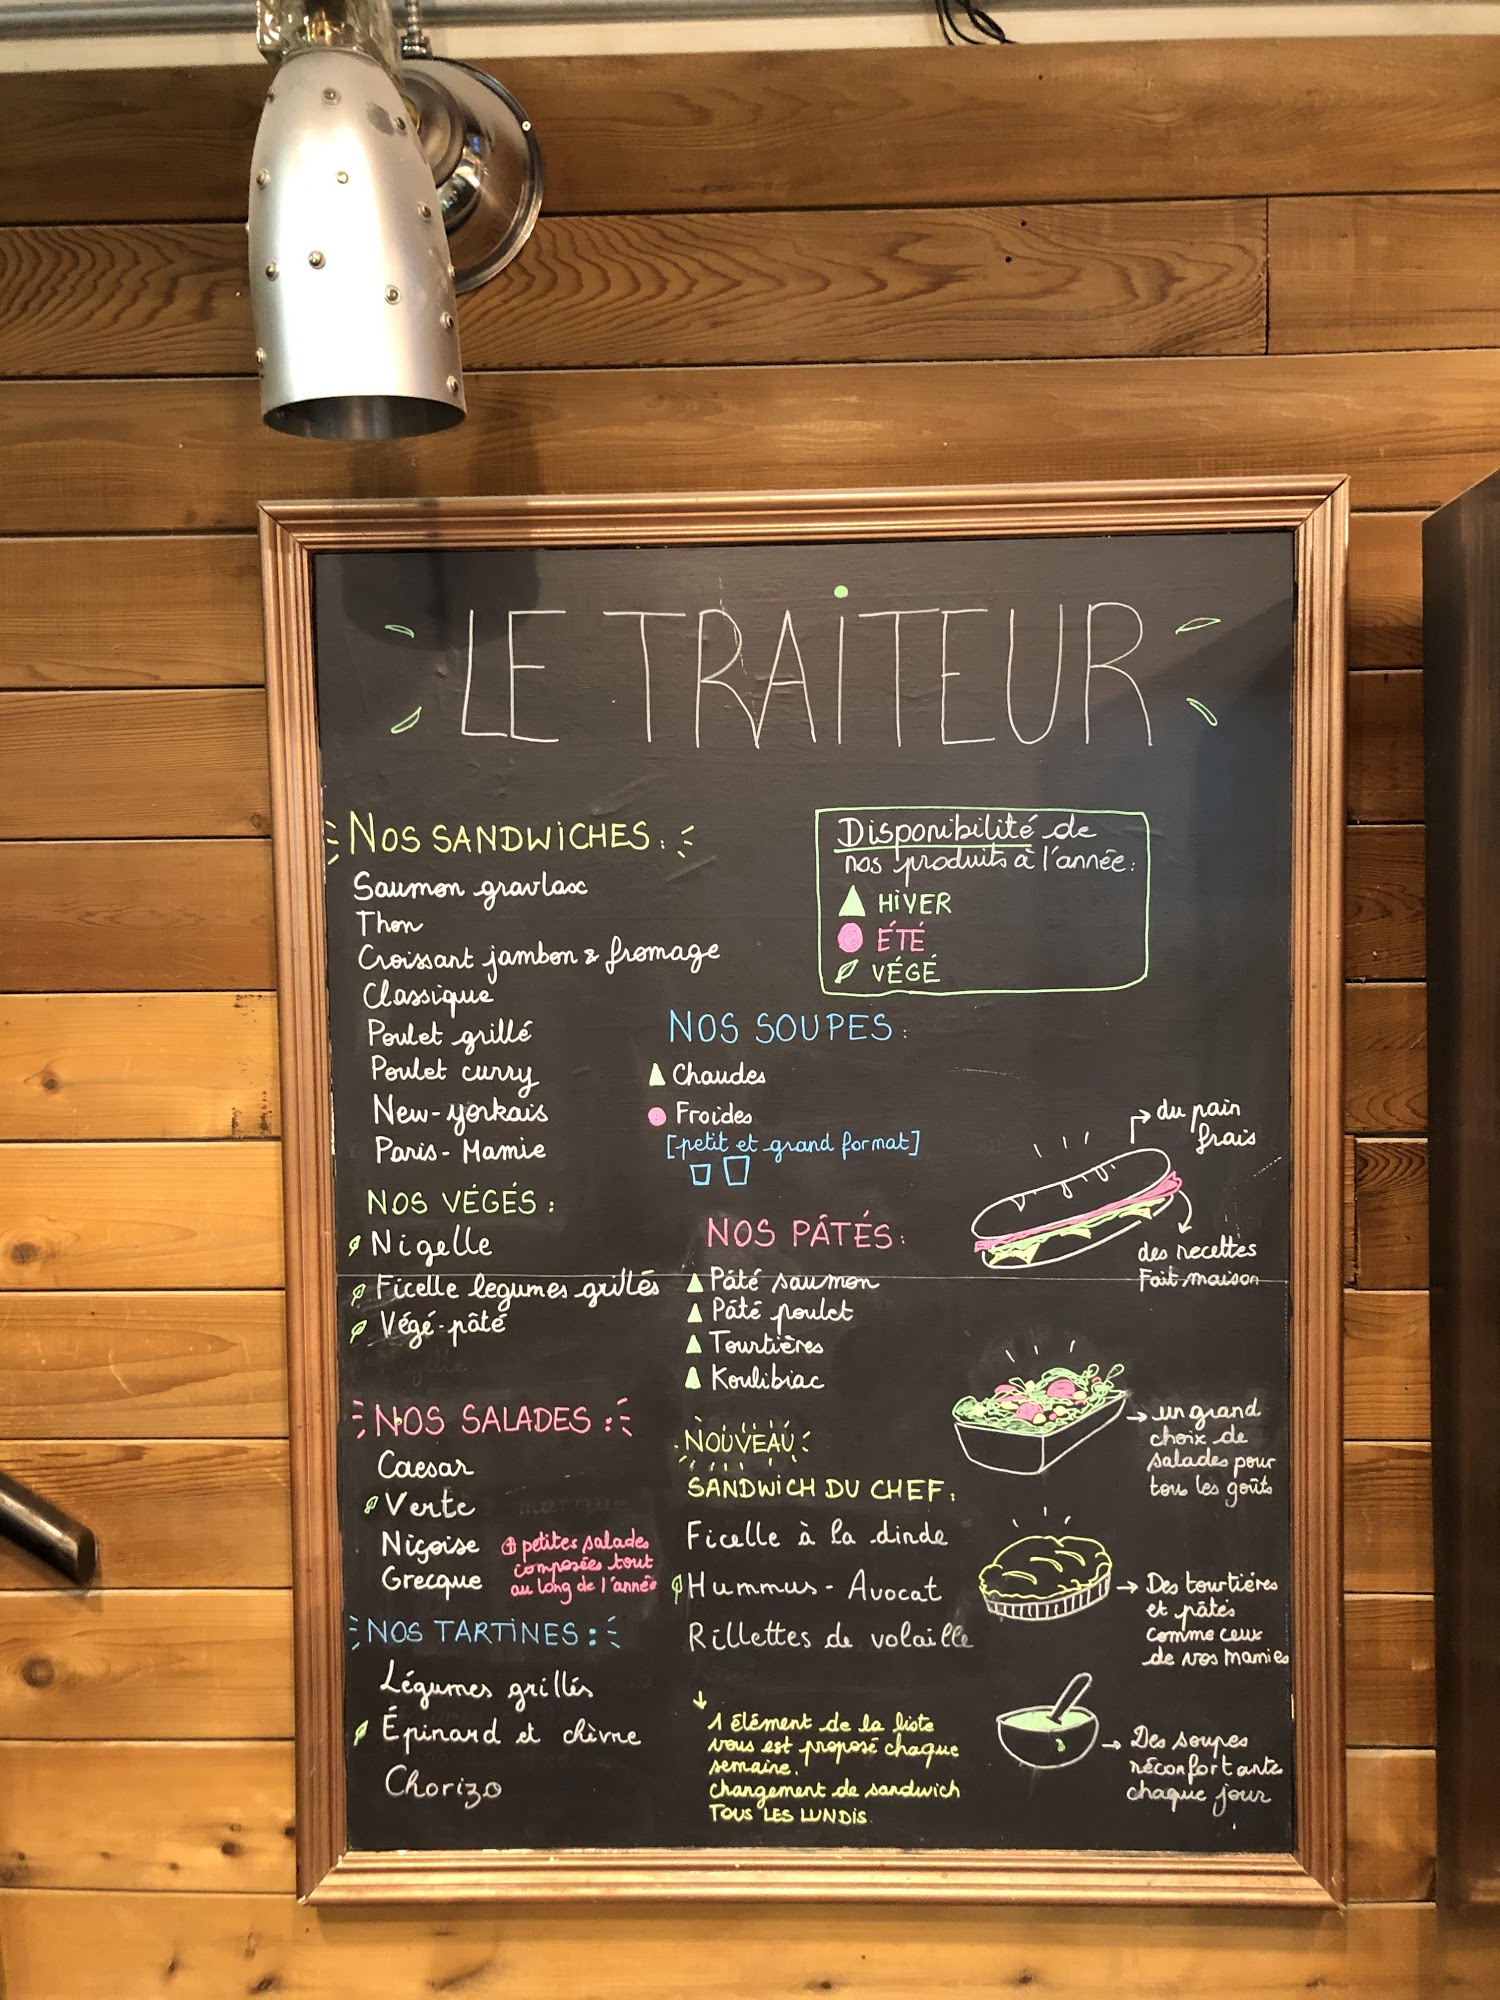 LE TRAiTEUR
NOS SANDWiCHES :
Saumon gravlax
Thon
Croissant jambon & fromage
Classique
Poulet grillé
Poulet curry
New-yorkais
Paris-Mamie
NOS VÉGÉS :
Nigelle
Ficelle legumes grillés
Végé-pâté
NOS SALADES :
Caesar
Verte
Niçoise
Grecque
⊕ petites salades
composées tout
au long de l'année
NOS TARTiNES :
Légumes grillés
Épinard et chèvre
Chorizo
Disponibilité de
nos produits à l'année :
HiVER
ÉTÉ
VÉGÉ
NOS SOUPES :
Chaudes
Froides
[petit et grand format]
NOS PÂTÉS :
Pâté saumon
Pâté poulet
Tourtières
Koulibiac
NOUVEAU :
SANDWiCH DU CHEF :
Ficelle à la dinde
Hummus - Avocat
Rillettes de volaille
↓
1 élément de la liste
vous est proposé chaque
semaine.
changement de sandwich
TOUS LES LUNDiS.
du pain
frais
des recettes
Fait maison
→ un grand
choix de
salades pour
tous les goûts
→ Des tourtières
et pâtés
comme ceux
de vos mamies
→ Des soupes
réconfortante
chaque jour